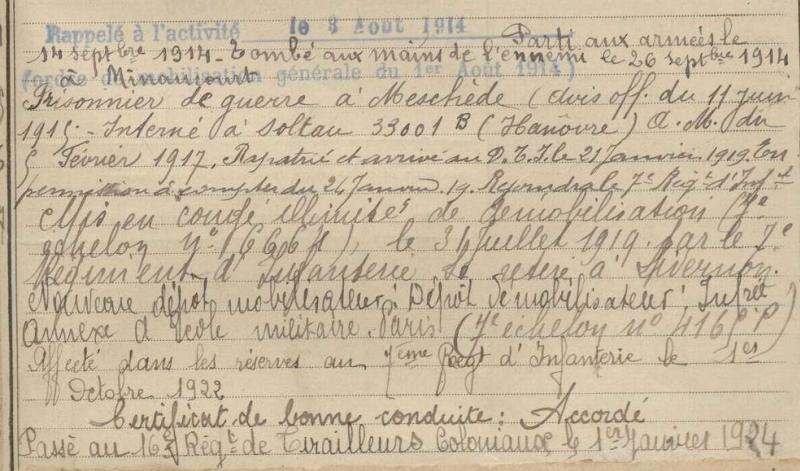 Rappelé à l'activité le 3 Août 1914 Parti aux armées le
14 septbre 1914 - Tombé aux mains de l'ennemi le 26 septbre 1914
(ordre de mobilisation générale du 1er Août 1914)
à
Prisonnier de guerre à Meschède (avis off. du 11 juin
1915 - Interné à Soltau 33001 B (Hanôvre) A.M. du
5 Février 1917. Rapatrié et arrivé au D.T.I. le 21 Janvier 1919. En
permission à compter du 24 Janvier 19. Rejoindra le 7e Régt d'Inft
Mis en congé illimité de démobilisation (7e
échelon No ), le 31 juillet 1919. par le 7e
Régiment d'Infanterie se retire à
Nouveau dépôt mobilisateur: Dépôt démobilisateur:
Annexe d'Ecole militaire. Paris (7e échelon no 416
Affecté dans les réserves au 7ème Régt d'Infanterie le 1er
Octobre 1922
Certificat de bonne conduite: Accordé
Passé au 16e Régt de Tirailleurs Coloniaux le 1er Janvier 1924